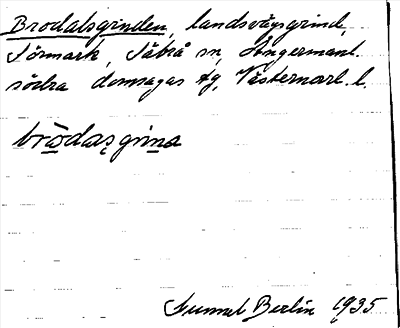 Brodalsgrinden, landsvägsgrind,
Törmark, Säbrå sn, Ångermanl.
södra domsagas tg, Västernorrl. l.
brōdaşgrina
Gunnel Berlin 1935